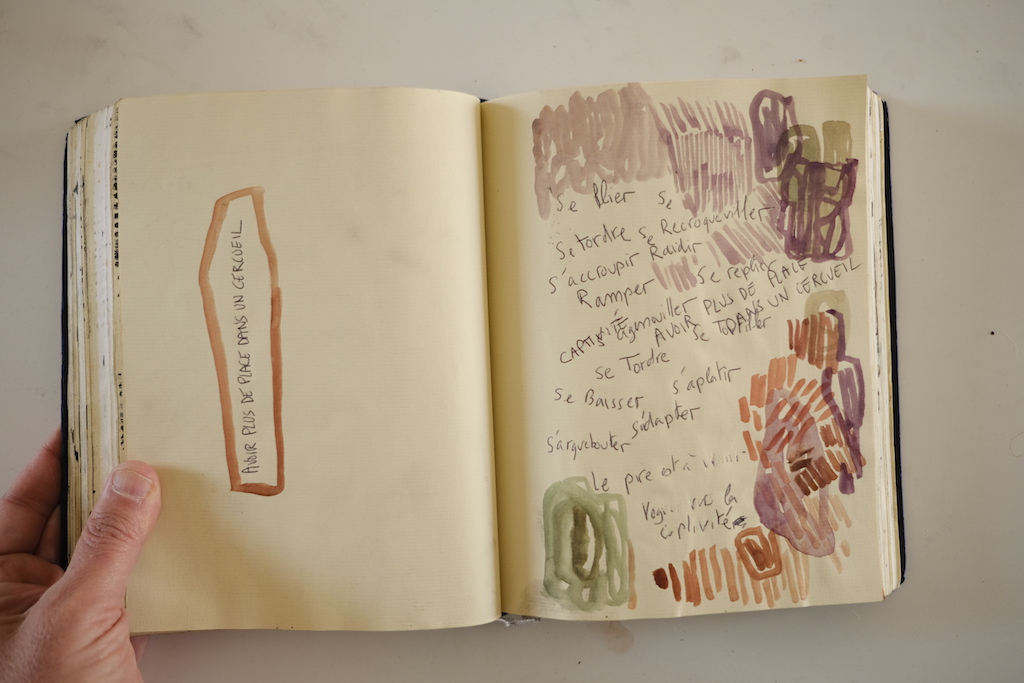 AVOIR PLUS DE PLACE DANS UN CERCUEIL
Se Plier se
Se tordre se Recroqueviller
s'accroupir Raidir
Ramper se replier
CAPTIVITÉ AVOIR PLUS DE PLACE
se DANS UN CERCUEIL
se Tordre
se Baisser s'aplatir
s'arquebouter s'adapter
Le pire est à venir
la
captivité